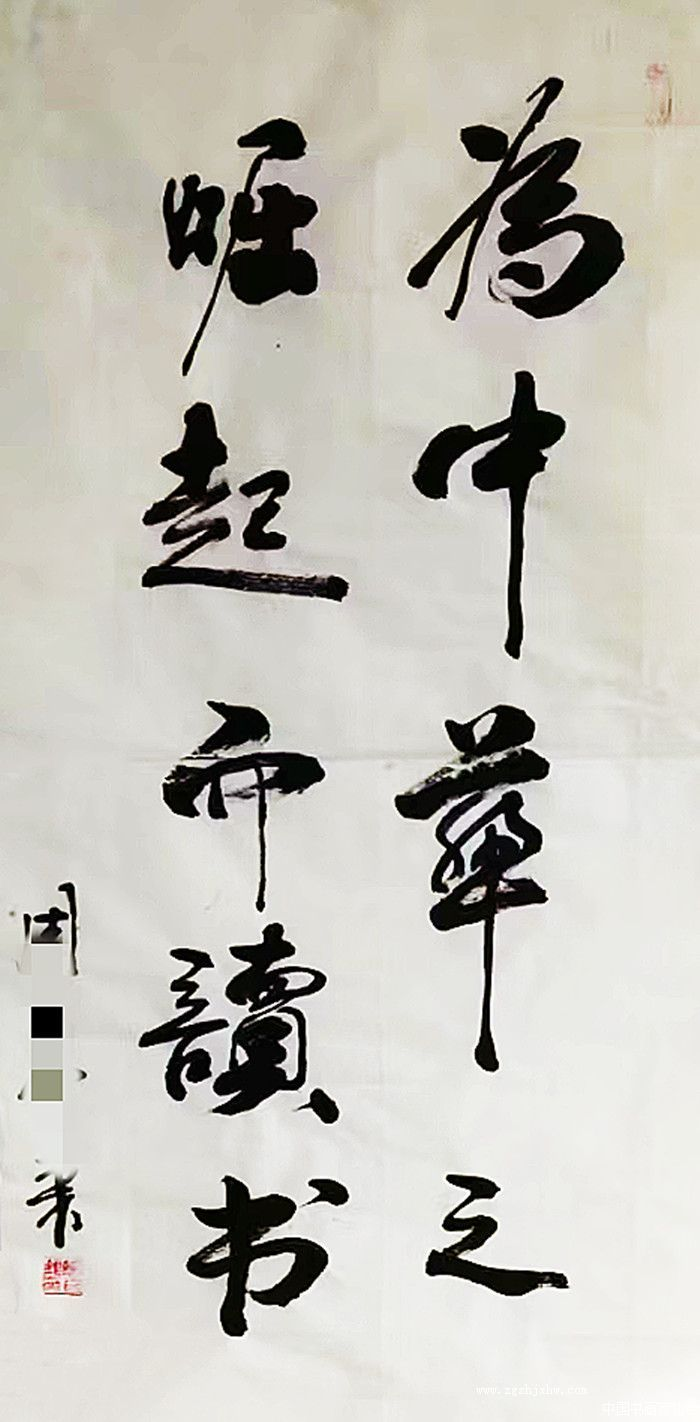 為中華之
崛起而讀书
周
www.zgzhjxhw.com